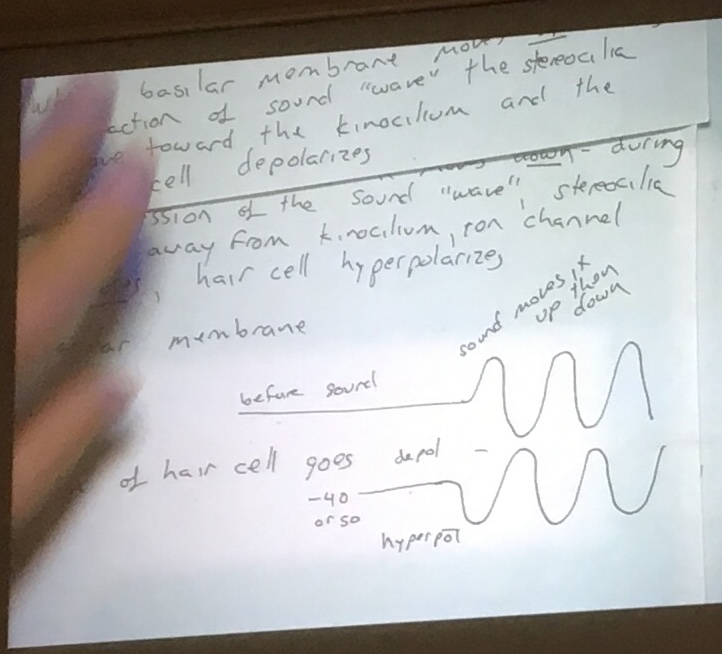 basilar membrane moves up
action of sound "wave" the stereocilia
toward the kinocilium and the
cell depolarizes
down - during
ssion of the sound "wave", stereocilia
away from kinocilium, ion channel
hair cell hyperpolarizes
membrane
sound moves it
up then
down
before sound
of hair cell goes depol -
-40
or so
hyperpol